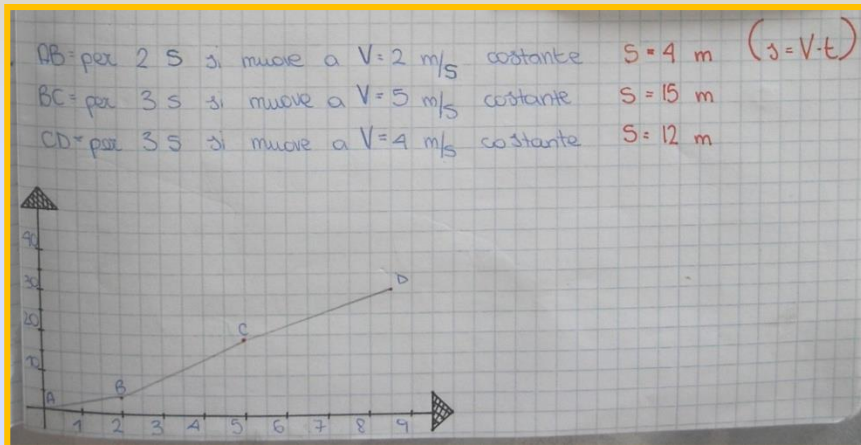 AB= per 2 s si muove a V= 2 m/s costante S= 4 m (s=V·t)
BC= per 3 s si muove a V= 5 m/s costante S= 15 m
CD= per 3 s si muove a V= 4 m/s costante S= 12 m
40
30
20
10
A B C D
1 2 3 4 5 6 7 8 9